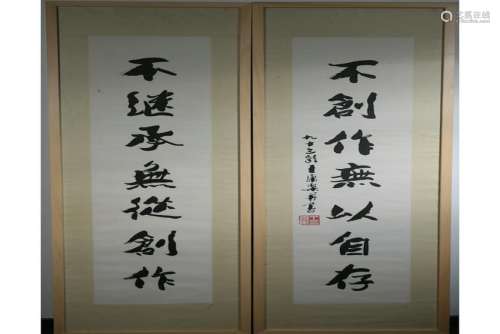 不創作無以自存
九十三
不继承無從創作